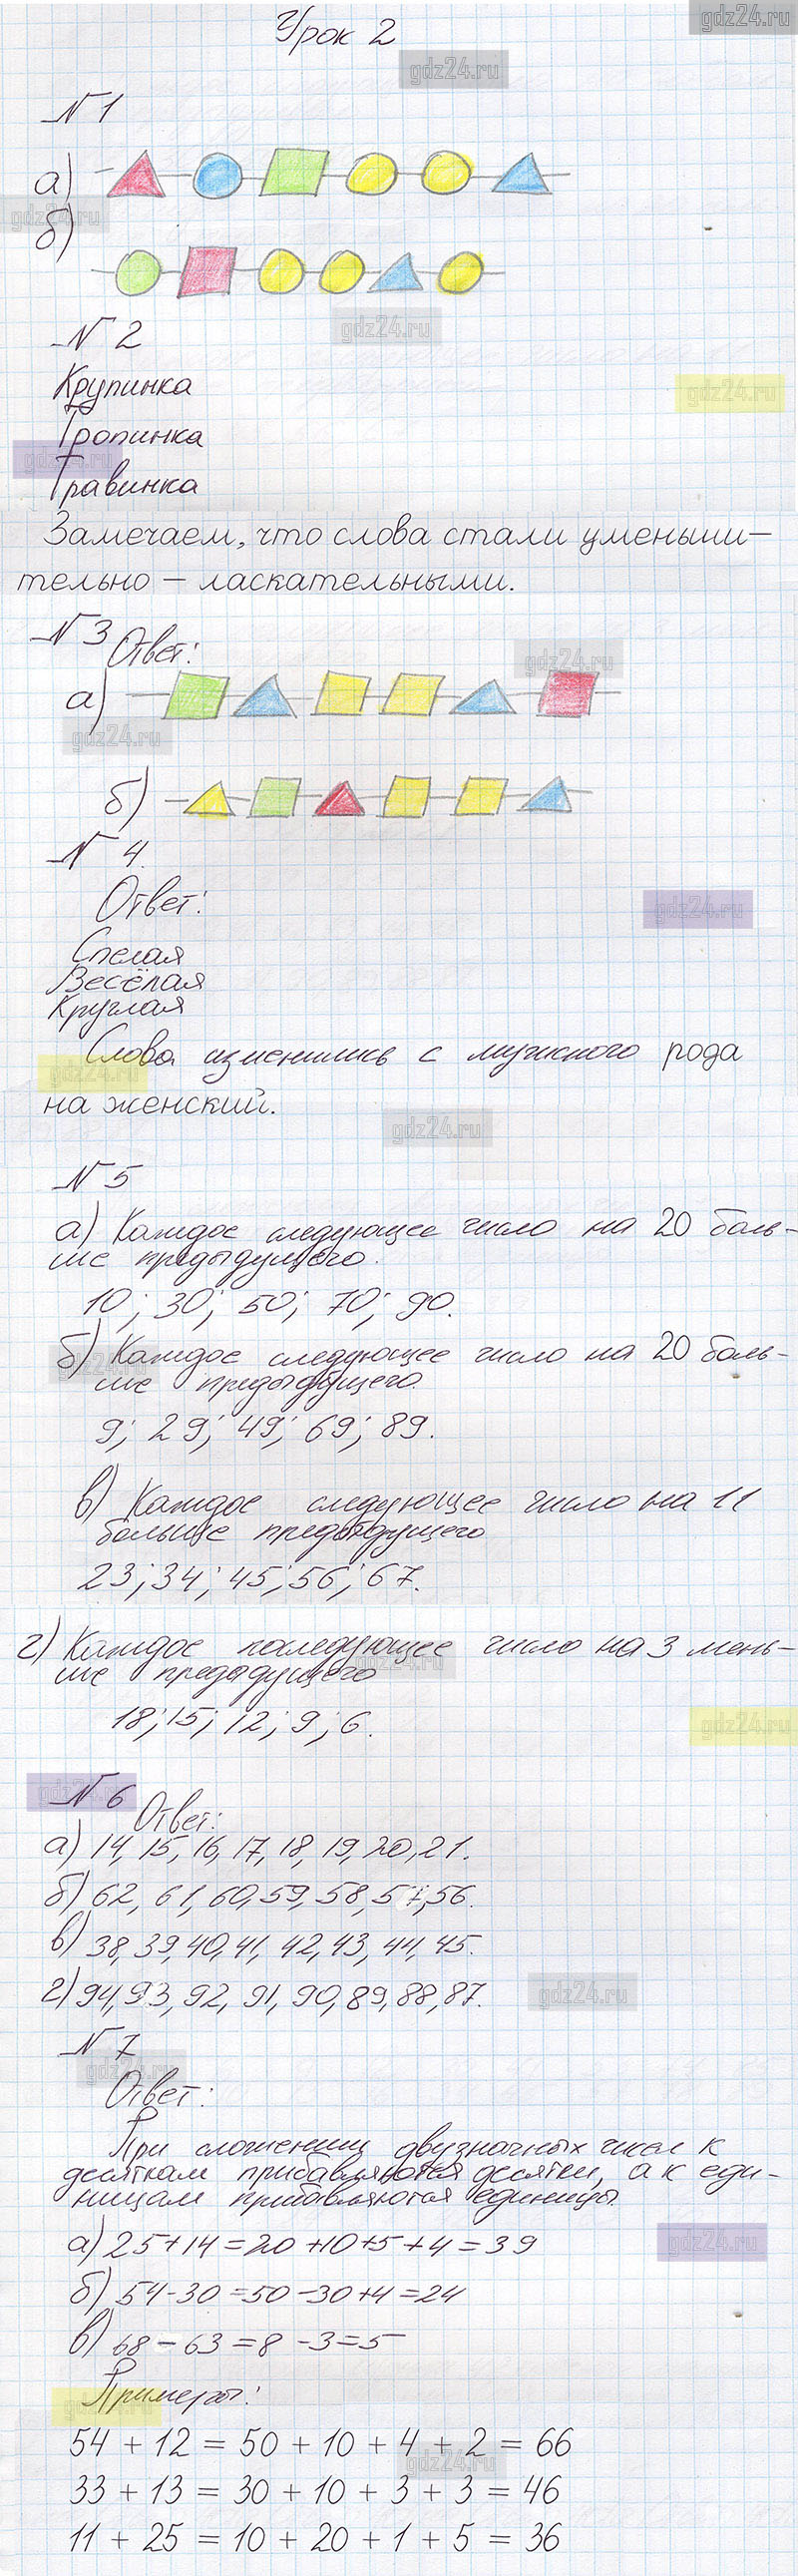 gdz24.ru
Урок 2
gdz24.ru
№ 1
а)
gdz24.ru
б)
gdz24.ru
№ 2
Крупинка
gdz24.ru
Тропинка
gdz24.ru
Травинка
Замечаем, что слова стали уменьши-
тельно - ласкательными.
№ 3 Ответ:
gdz24.ru
а)
gdz24.ru
б)
№ 4.
Ответ:
gdz24.ru
Спелая
Весёлая
Круглая
Слова изменились с мужского рода
gdz24.ru
на женский.
gdz24.ru
№ 5
а) Каждое следующее число на 20 боль-
ше предыдущего.
10; 30; 50; 70; 90.
б) Каждое следующее число на 20 боль-
gdz24.ru
ше предыдущего.
9; 29; 49; 69; 89.
в) Каждое следующее число на 11
больше предыдущего
23; 34; 45; 56; 67.
г) Каждое последующее число на 3 мень-
ше предыдущего
gdz24.ru
18; 15; 12; 9; 6.
gdz24.ru
№ 6 Ответ:
gdz24.ru
а) 14, 15, 16, 17, 18, 19, 20, 21.
б) 62, 61, 60, 59, 58, 57, 56.
в) 38, 39, 40, 41, 42, 43, 44, 45.
г) 94, 93, 92, 91, 90, 89, 88, 87.
gdz24.ru
№ 7
gdz24.ru
Ответ:
При сложении двузначных чисел к
десяткам прибавляются десятки, а к еди-
ницам прибавляются единицы
а) 25 + 14 = 20 + 10 + 5 + 4 = 39
gdz24.ru
б) 54 - 30 = 50 - 30 + 4 = 24
в) 68 - 63 = 8 - 3 = 5
Примеры:
gdz24.ru
54 + 12 = 50 + 10 + 4 + 2 = 66
gdz24.ru
33 + 13 = 30 + 10 + 3 + 3 = 46
11 + 25 = 10 + 20 + 1 + 5 = 36